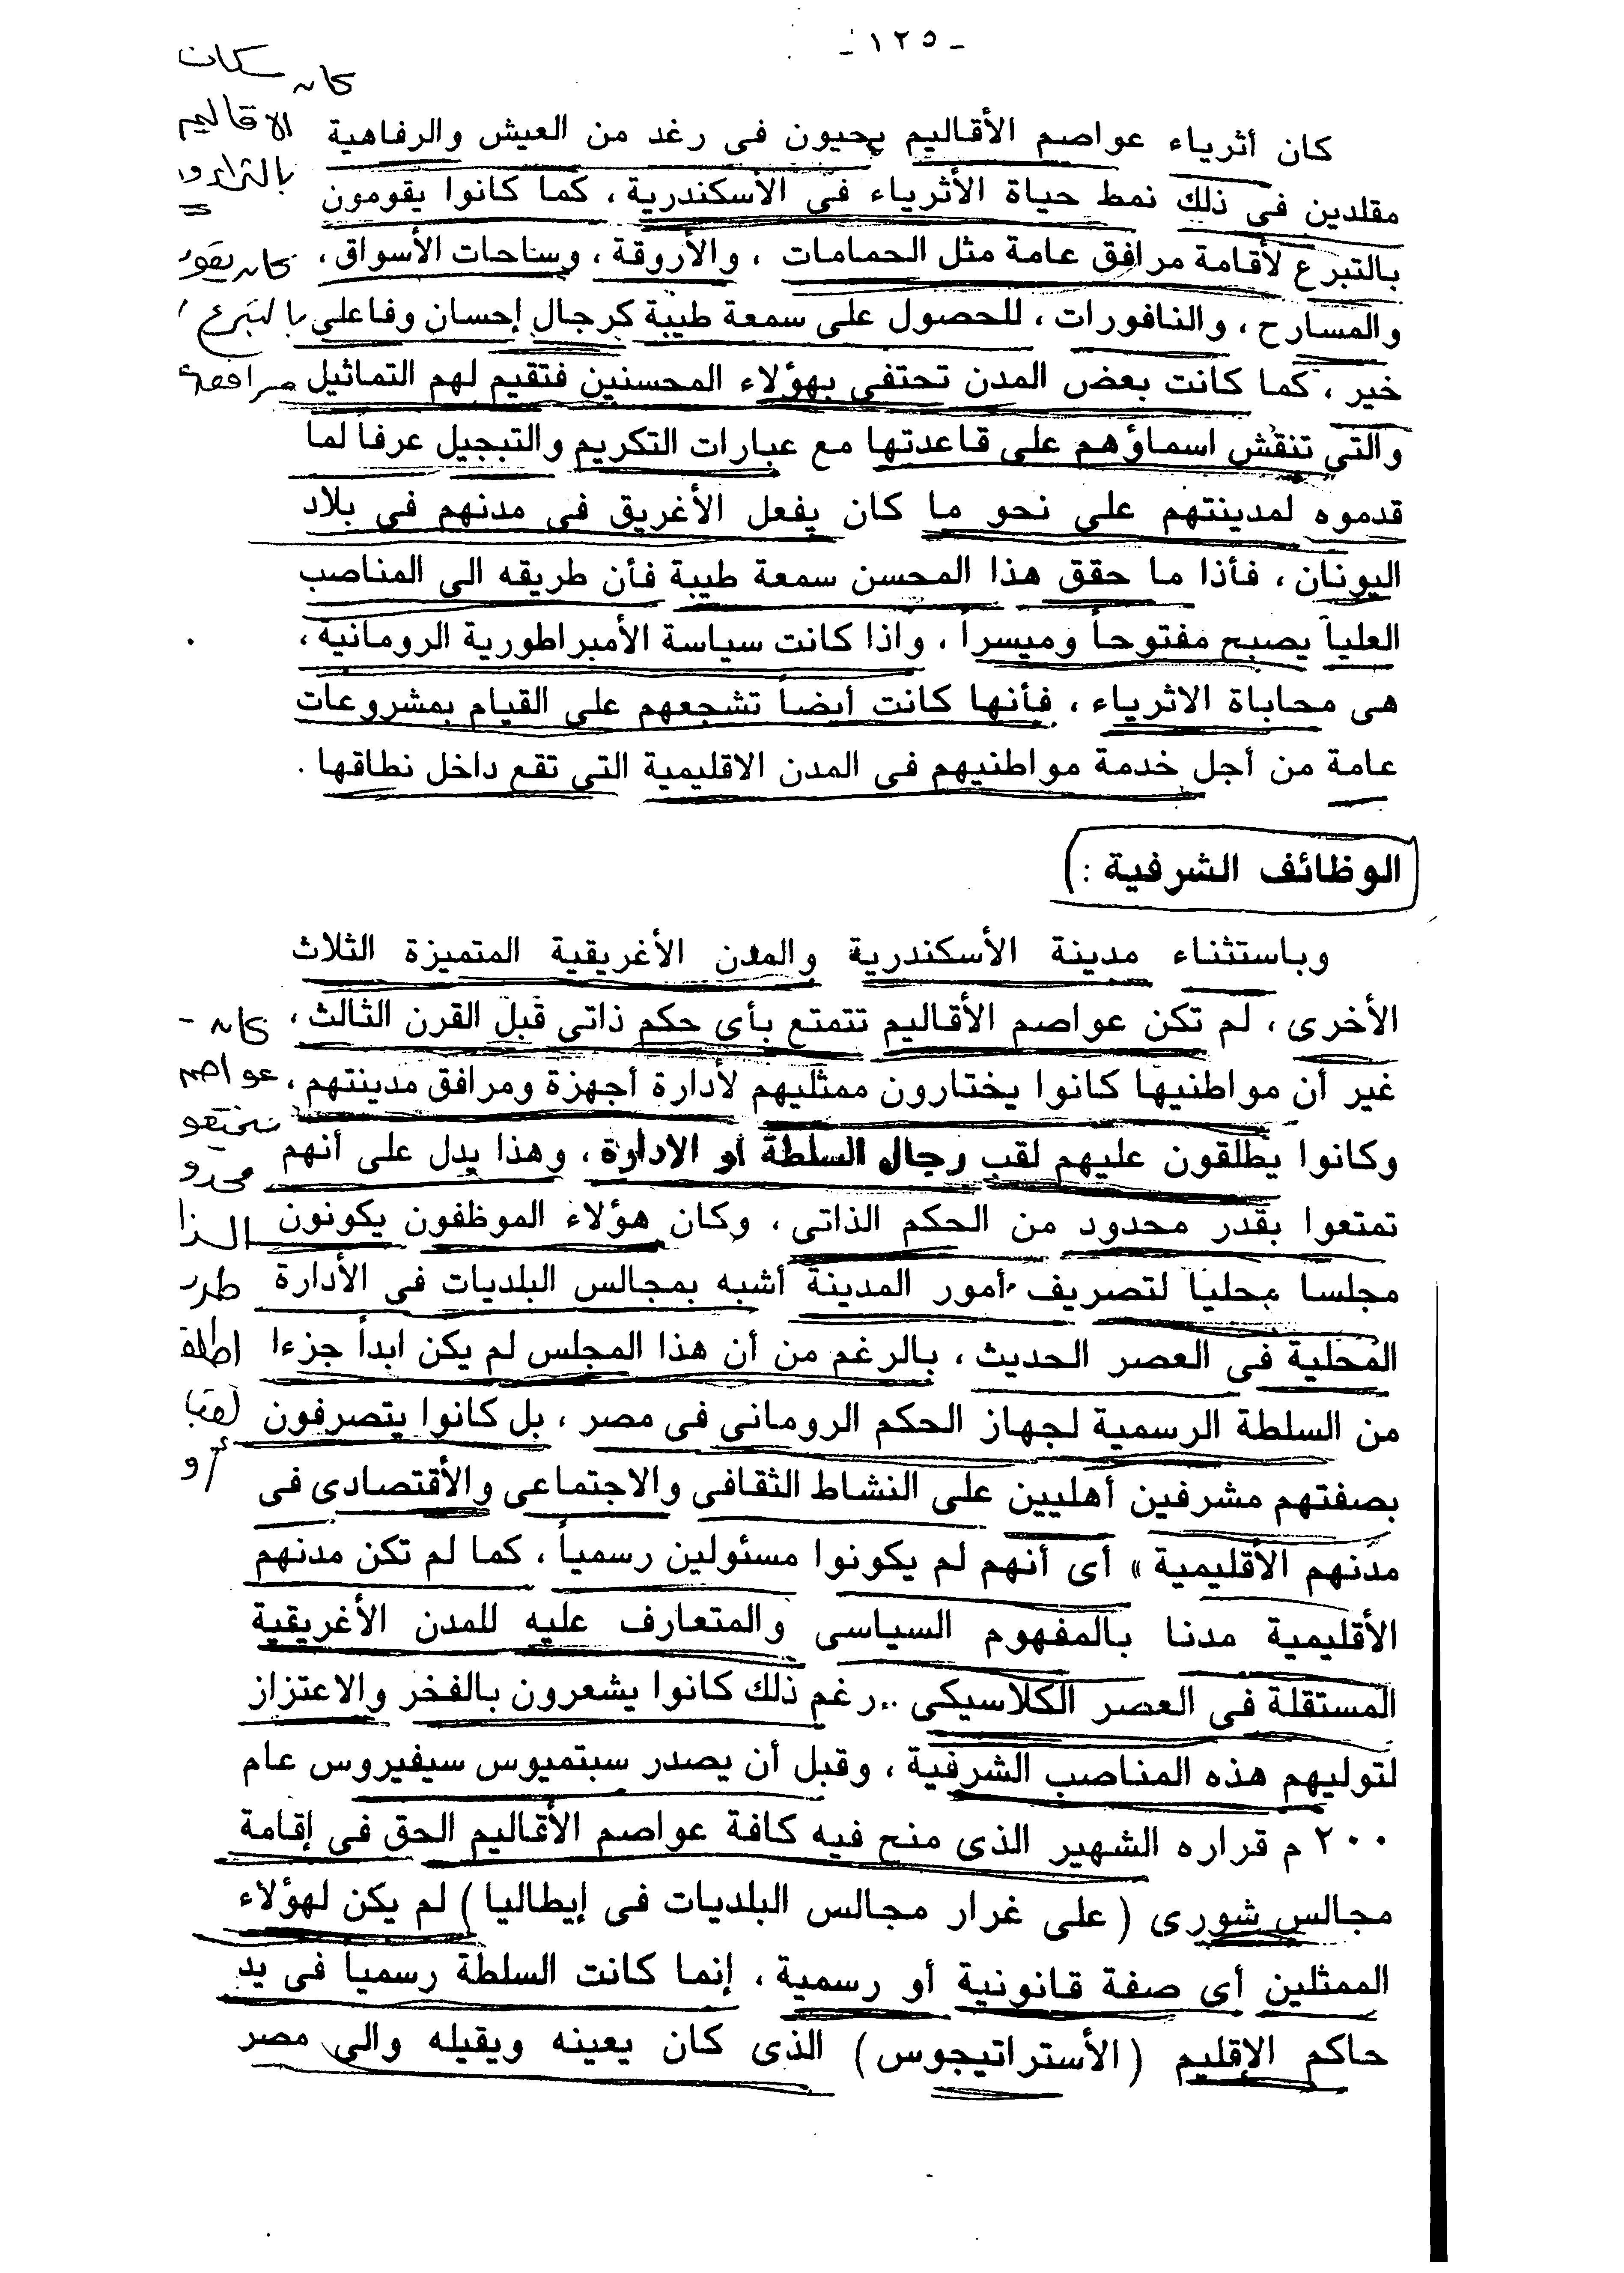 - ١٢٥ -
كان أثرياء عواصم الأقاليم يحيون فى رغد من العيش والرفاهية
مقلدين فى ذلك نمط حياة الأثرياء فى الأسكندرية ، كما كانوا يقومون
بالتبرع لأقامة مرافق عامة مثل الحمامات ، والأروقة ، وساحات الأسواق ،
والمسارح ، والنافورات ، للحصول على سمعة طيبة كرجال إحسان وفاعلى
خير ، كما كانت بعض المدن تحتفى بهؤلاء المحسنين فتقيم لهم التماثيل
والتى تنقش اسماؤهم على قاعدتها مع عبارات التكريم والتبجيل عرفاً لما
قدموه لمدينتهم على نحو ما كان يفعل الأغريق فى مدنهم فى بلاد
اليونان ، فأذا ما حقق هذا المحسن سمعة طيبة فأن طريقه الى المناصب
العليا يصبح مفتوحاً وميسراً ، واذا كانت سياسة الأمبراطورية الرومانية ،
هى محاباة الاثرياء ، فأنها كانت أيضاً تشجعهم على القيام بمشروعات
عامة من أجل خدمة مواطنيهم فى المدن الاقليمية التى تقع داخل نطاقها .
الوظائف الشرفية :
وباستثناء مدينة الأسكندرية والمدن الأغريقية المتميزة الثلاث
الأخرى ، لم تكن عواصم الأقاليم تتمتع بأى حكم ذاتى قبل القرن الثالث ،
غير أن مواطنيها كانوا يختارون ممثليهم لأدارة أجهزة ومرافق مدينتهم ،
وكانوا يطلقون عليهم لقب رجال السلطة او الادارة ، وهذا يدل على أنهم
تمتعوا بقدر محدود من الحكم الذاتى ، وكان هؤلاء الموظفون يكونون
مجلسا محليا لتصريف أمور المدينة أشبه بمجالس البلديات فى الأدارة
المحلية فى العصر الحديث ، بالرغم من أن هذا المجلس لم يكن ابداً جزءا
من السلطة الرسمية لجهاز الحكم الرومانى فى مصر ، بل كانوا يتصرفون
بصفتهم مشرفين أهليين على النشاط الثقافى والاجتماعى والأقتصادى فى
مدنهم الأقليمية » أى أنهم لم يكونوا مسئولين رسمياً ، كما لم تكن مدنهم
الأقليمية مدنا بالمفهوم السياسى والمتعارف عليه للمدن الأغريقية
المستقلة فى العصر الكلاسيكى .. رغم ذلك كانوا يشعرون بالفخر والاعتزاز
لتوليهم هذه المناصب الشرفية ، وقبل أن يصدر سبتميوس سيفيروس عام
٢٠٠ م قراره الشهير الذى منح فيه كافة عواصم الأقاليم الحق فى إقامة
مجالس شورى ( على غرار مجالس البلديات فى إيطاليا ) لم يكن لهؤلاء
الممثلين أى صفة قانونية أو رسمية ، إنما كانت السلطة رسميا فى يد
حاكم الإقليم ( الأستراتيجوس ) الذى كان يعينه ويقيله والى مصر
كان سكان
الاقاليم
كان
عواصم